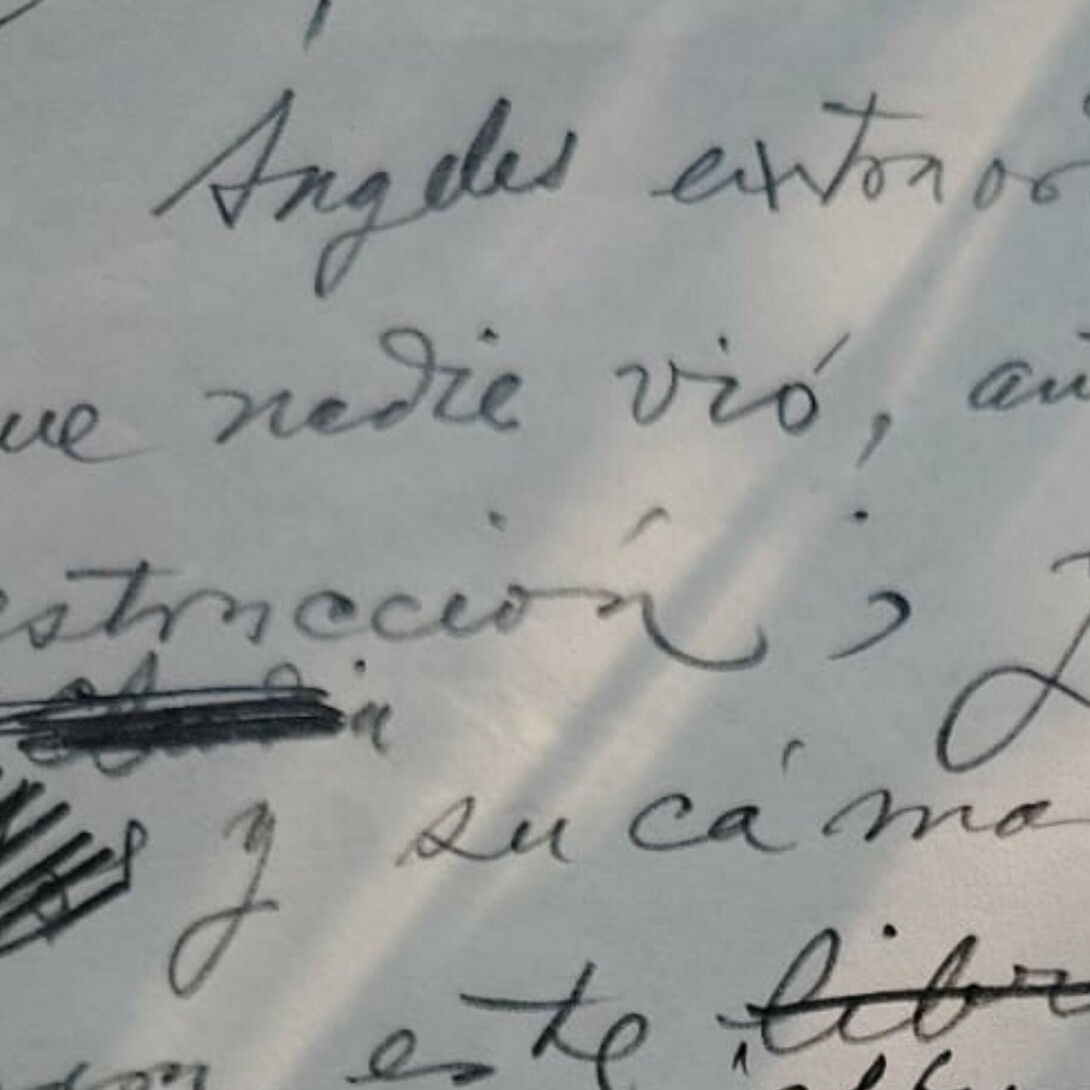 Ángeles extraor
ue nadie vió, au
estrucción;
y su cáma
este libr